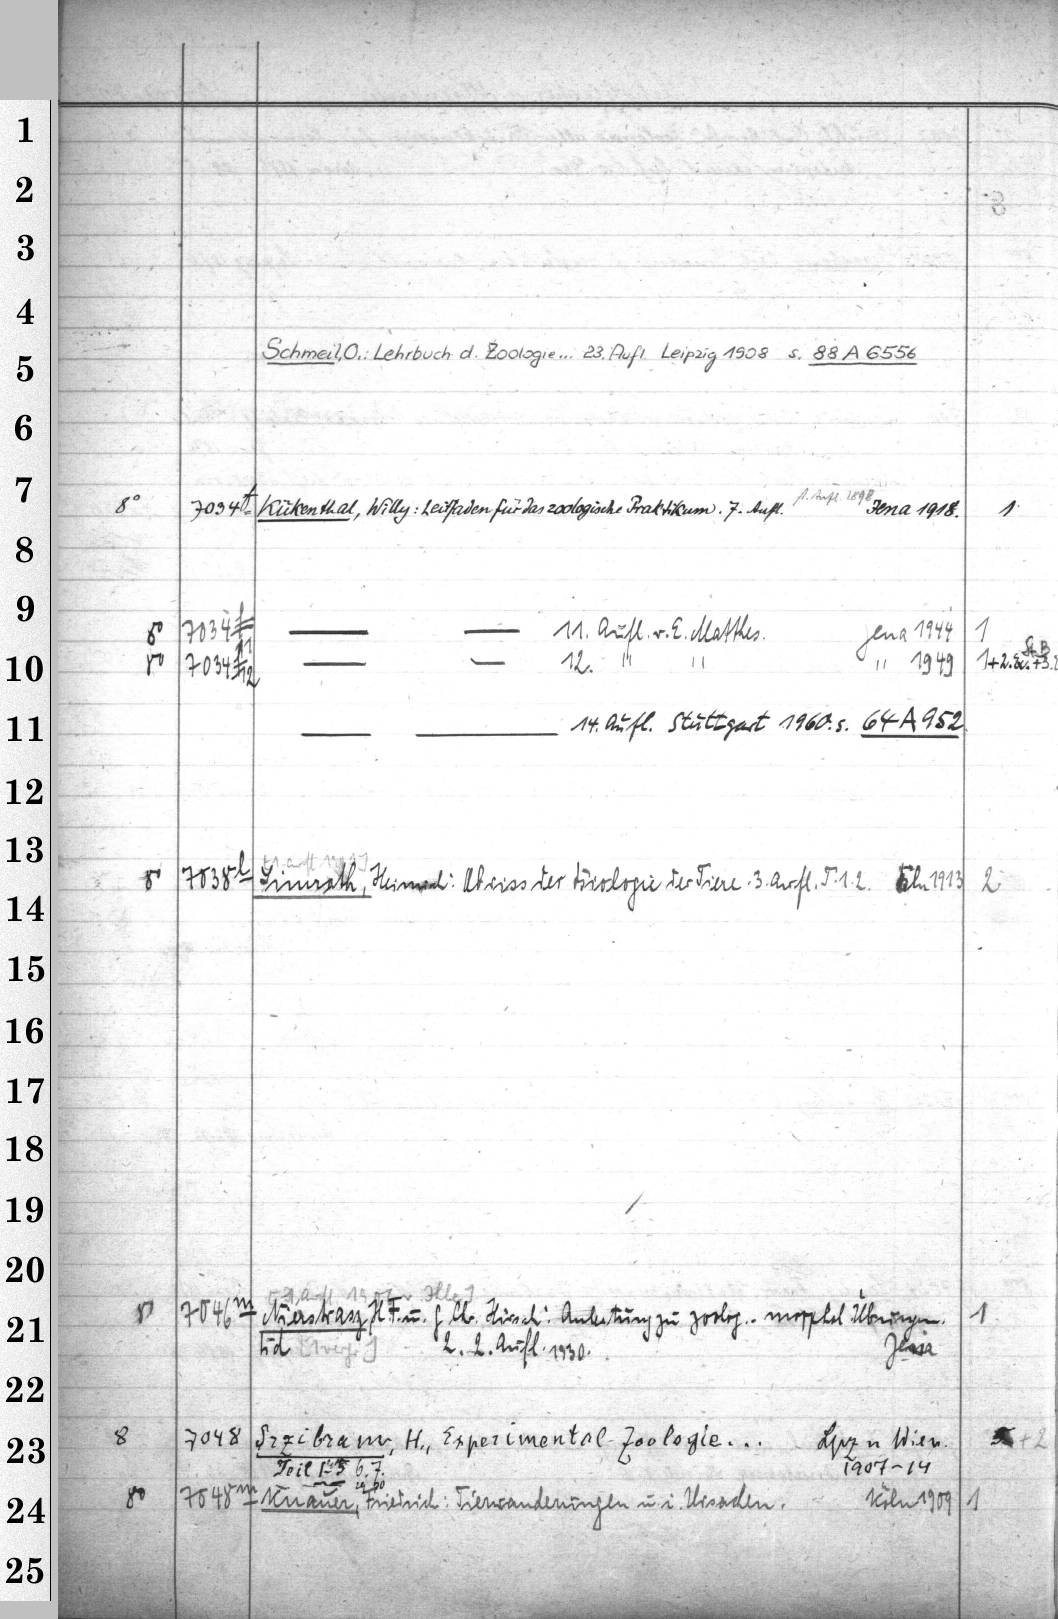 1
2
3
4
Schmeil, O.: Lehrbuch d. Zoologie... 23. Aufl. Leipzig 1908 s. 88 A 6556
5
6
7
8° 7034 Kükenthal, Willy: Leitfaden für das zoologische Praktikum. 7. Aufl. Jena 1918. 1
8
9
8° 7034 11. Aufl. v. E. Matthes. Jena 1944 1
10
8° 7034 12 12. " " " 1949 1+2.
11
14. Aufl. Stuttgart 1960. s. 64 A 952
12
13
8° 7038 l Simroth, Heinrich: Abriss der Biologie der Tiere. 3. Aufl. T. 1.2. 1913 2
14
15
16
17
18
19
20
8° 7046 m Nierstrasz, H. F. u. G. Chr. Hirsch: Anleitung zu zoolog. Übungen. 1
21
2. Aufl. 1930. Jena
22
8 7048 Przibram, H., Experimental-Zoologie... Lpz u Wien. + 2
23
Teil 6. 7. 1907-14
8° 7048 m Knauer, Friedrich: Tierwanderungen u. i. Ursachen. Köln 1909 1
24
25